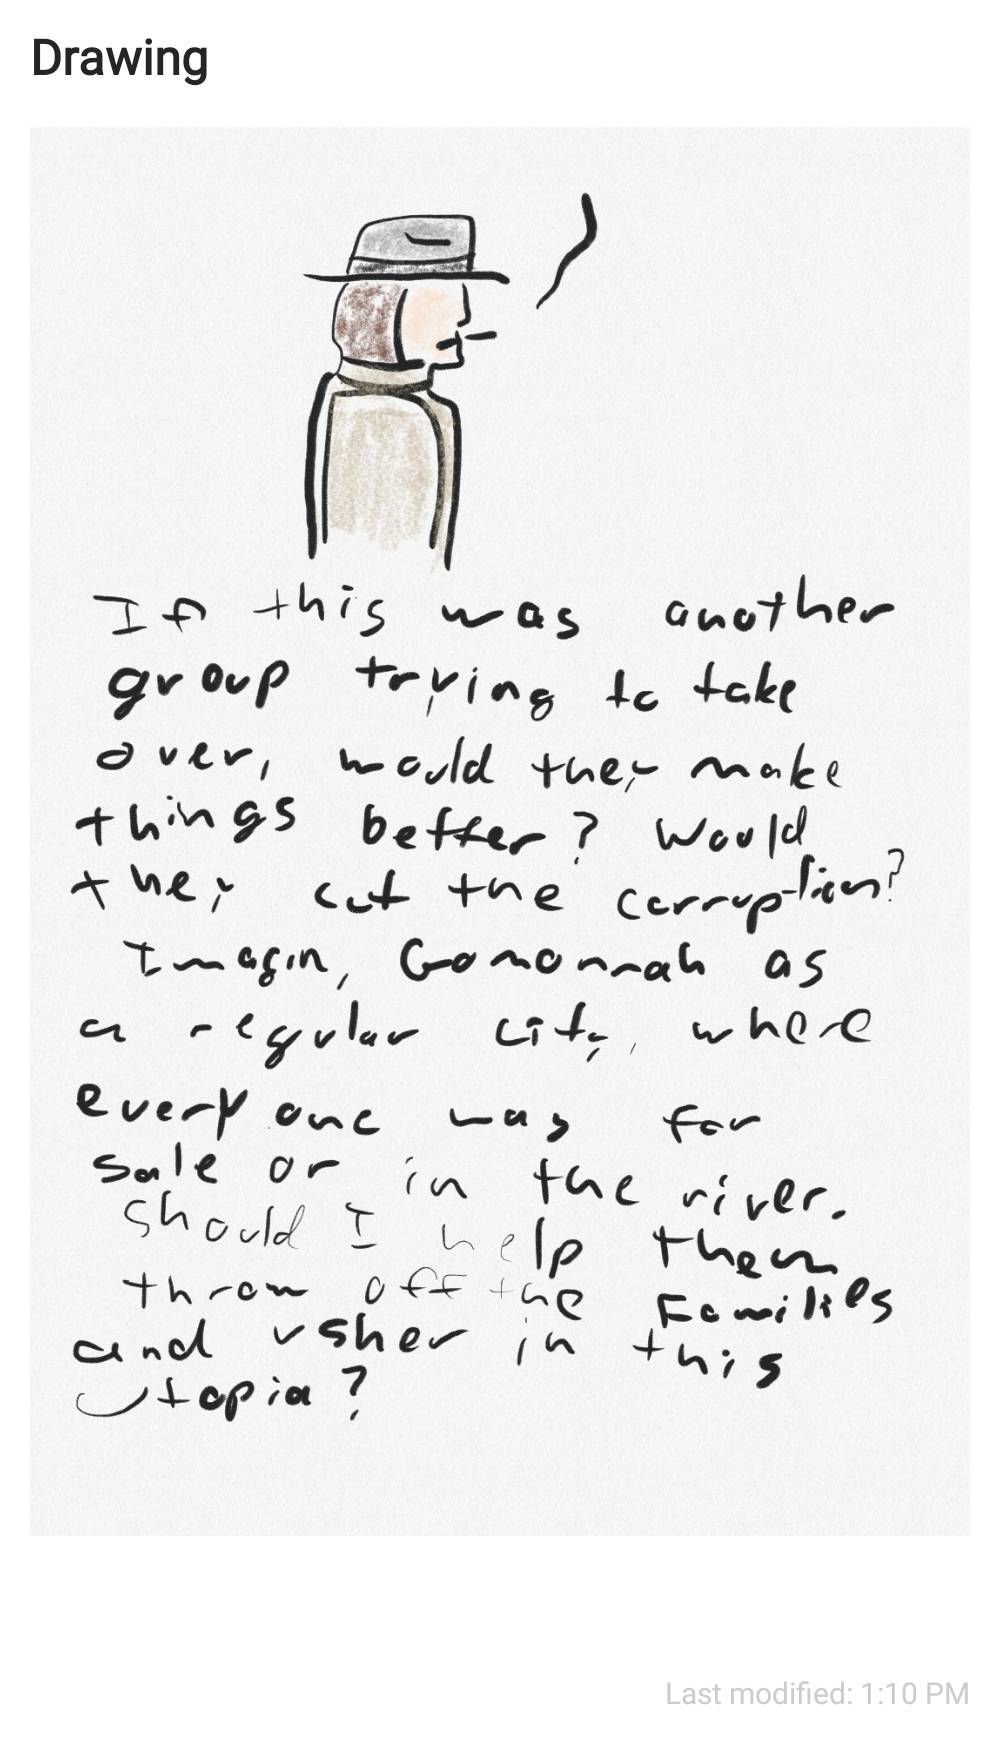 Drawing
If this was another
group trying to take
over, would they make
things better? Would
they cut the corruption?
Imagin, Gomorrah as
a regular city, where
everyone was for
sale or in the river.
Should I help them
throw off the Families
and usher in this
utopia?
Last modified: 1:10 PM